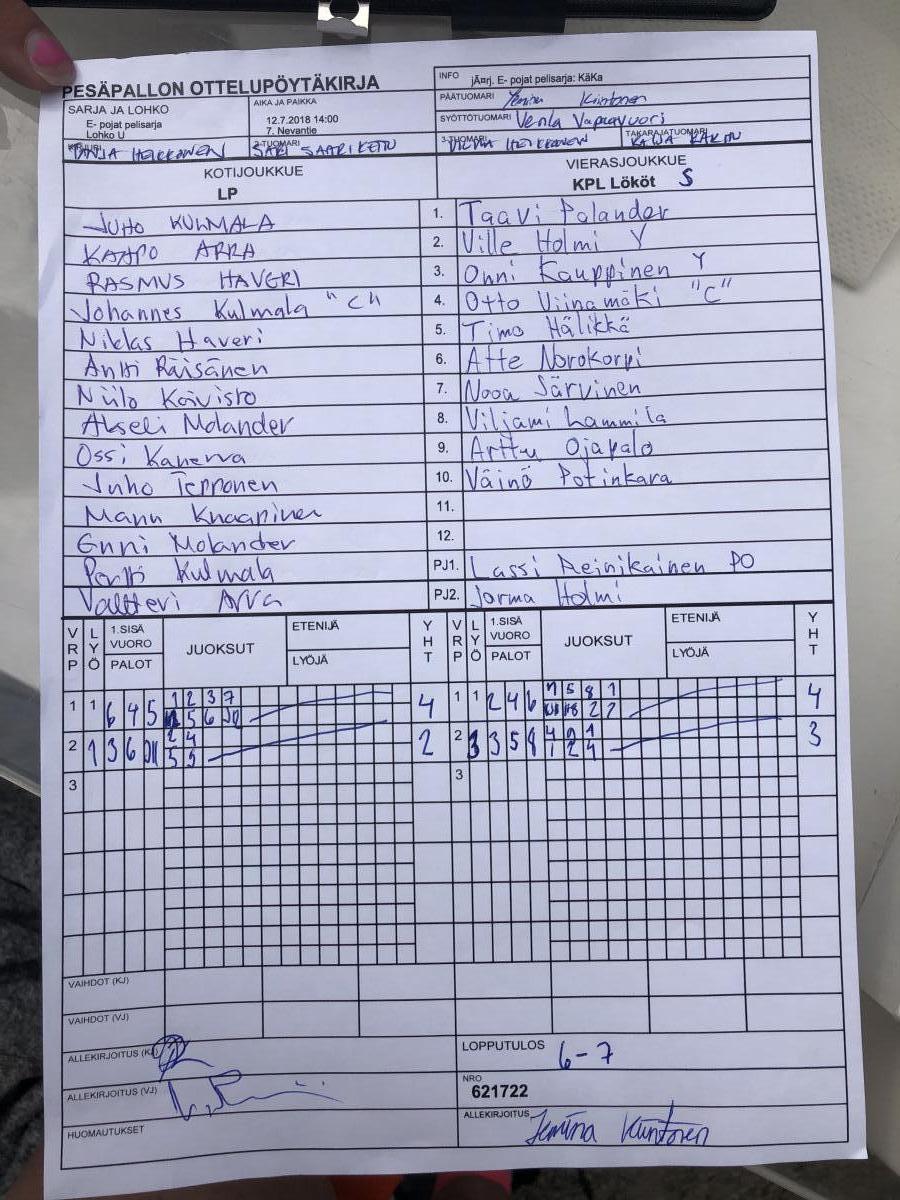 PESÄPALLON OTTELUPÖYTÄKIRJA
INFO jÃ¤rj. E- pojat pelisarja: KäKa
SARJA JA LOHKO
E- pojat pelisarja
Lohko U
AIKA JA PAIKKA
12.7.2018 14:00
7. Nevantie
PÄÄTUOMARI
SYÖTTÖTUOMARI Venla Vapaavuori
TANJA HEIKKONEN
2-TUOMARI SARI SAARIKETTU
3-TUOMARI HEIKKONEN
TAKARAJATUOMARI KAIJA
KOTIJOUKKUE
LP
VIERASJOUKKUE
KPL Lököt S
JUHO KULMALA 1. Taavi Palander
KAAPO ARRA 2. Ville Holmi Y
RASMUS HAVERI 3. Onni Kauppinen Y
Johannes Kulmala "C" 4. Otto Viinamäki "C"
Niklas Haveri 5. Timo Hälikkä
Antti Räisänen 6. Atte Norokorpi
Niilo Koivisto 7. Nooa Särvinen
Akseli Molander 8. Viljami Lammila
Ossi Kanerva 9. Arttu Ojapalo
Juho Tepponen 10. Väinö Potinkara
Manu Knaapinen 11.
Enni Molander 12.
Pertti Kulmala PJ1. Lassi Reinikainen PO
Valtteri Arra PJ2. Jorma Holmi
VRP LYÖ 1.SISÄ VUORO PALOT JUOKSUT ETENIJÄ LYÖJÄ YHT VRP LYÖ 1.SISÄ VUORO PALOT JUOKSUT ETENIJÄ LYÖJÄ YHT
1 1 6 4 5 1 2 3 7 4 1 1 2 4 6 7 5 8 1 4
5 6 2 2
2 1 3 6 2 4 2 2 3 3 5 8 4 9 1 3
5 5 1 2 4
3 3
VAIHDOT (KJ)
VAIHDOT (VJ)
ALLEKIRJOITUS (KJ)
LOPPUTULOS 6-7
ALLEKIRJOITUS (VJ)
NRO
621722
HUOMAUTUKSET
ALLEKIRJOITUS Jemina Kiintonen